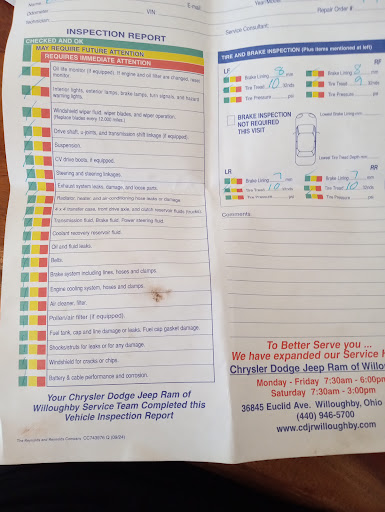 Name
Odometer
VIN
E-mail
Technician
Year/Model
Repair Order #
Service Consultant:
INSPECTION REPORT
CHECKED AND OK
MAY REQUIRE FUTURE ATTENTION
REQUIRES IMMEDIATE ATTENTION
Oil life monitor (if equipped). If engine and oil filter are changed, reset
monitor.
Interior lights, exterior lamps, brake lamps, turn signals, and hazard
warning lights.
Windshield wiper fluid, wiper blades, and wiper operation.
(Replace blades every 12,000 miles.)
Drive shaft, u-joints, and transmission shift linkage (if equipped).
Suspension.
CV drive boots, if equipped.
Steering and steering linkages.
Exhaust system leaks, damage, and loose parts.
Radiator, heater, and air-conditioning hose leaks or damage.
4 x 4 transfer case, front drive axle, and clutch reservoir fluids (trucks).
Transmission fluid, Brake fluid, Power steering fluid.
Coolant recovery reservoir fluid.
Oil and fluid leaks.
Belts.
Brake system including lines, hoses and clamps.
Engine cooling system, hoses and clamps.
Air cleaner, filter.
Pollen/air filter (if equipped).
Fuel tank, cap and line damage or leaks. Fuel cap gasket damage.
Shocks/struts for leaks or for any damage.
Windshield for cracks or chips.
Battery & cable performance and corrosion.
Your Chrysler Dodge Jeep Ram of
Willoughby Service Team Completed this
Vehicle Inspection Report
The Reynolds and Reynolds Company CC743076 Q (09/24)
TIRE AND BRAKE INSPECTION (Plus items mentioned at left)
LF
RF
Brake Lining 8 mm
Brake Lining 8
Tire Tread 10 /32nds
Tire Tread 9 /32nds
Tire Pressure psi
Tire Pressure psi
BRAKE INSPECTION
NOT REQUIRED
THIS VISIT
Lowest Brake Lining mm
Lowest Tire Tread Depth
LR
RR
Brake Lining 7 mm
Brake Lining 7
Tire Tread 10 /32nds
Tire Tread 10 /32nds
Tire Pressure psi
Tire Pressure psi
Comments
To Better Serve you ...
We have expanded our Service H
Chrysler Dodge Jeep Ram of Willo
Monday - Friday 7:30am - 6:00pm
Saturday 7:30am - 3:00pm
36845 Euclid Ave. Willoughby, Ohio
(440) 946-5700
www.cdjrwilloughby.com